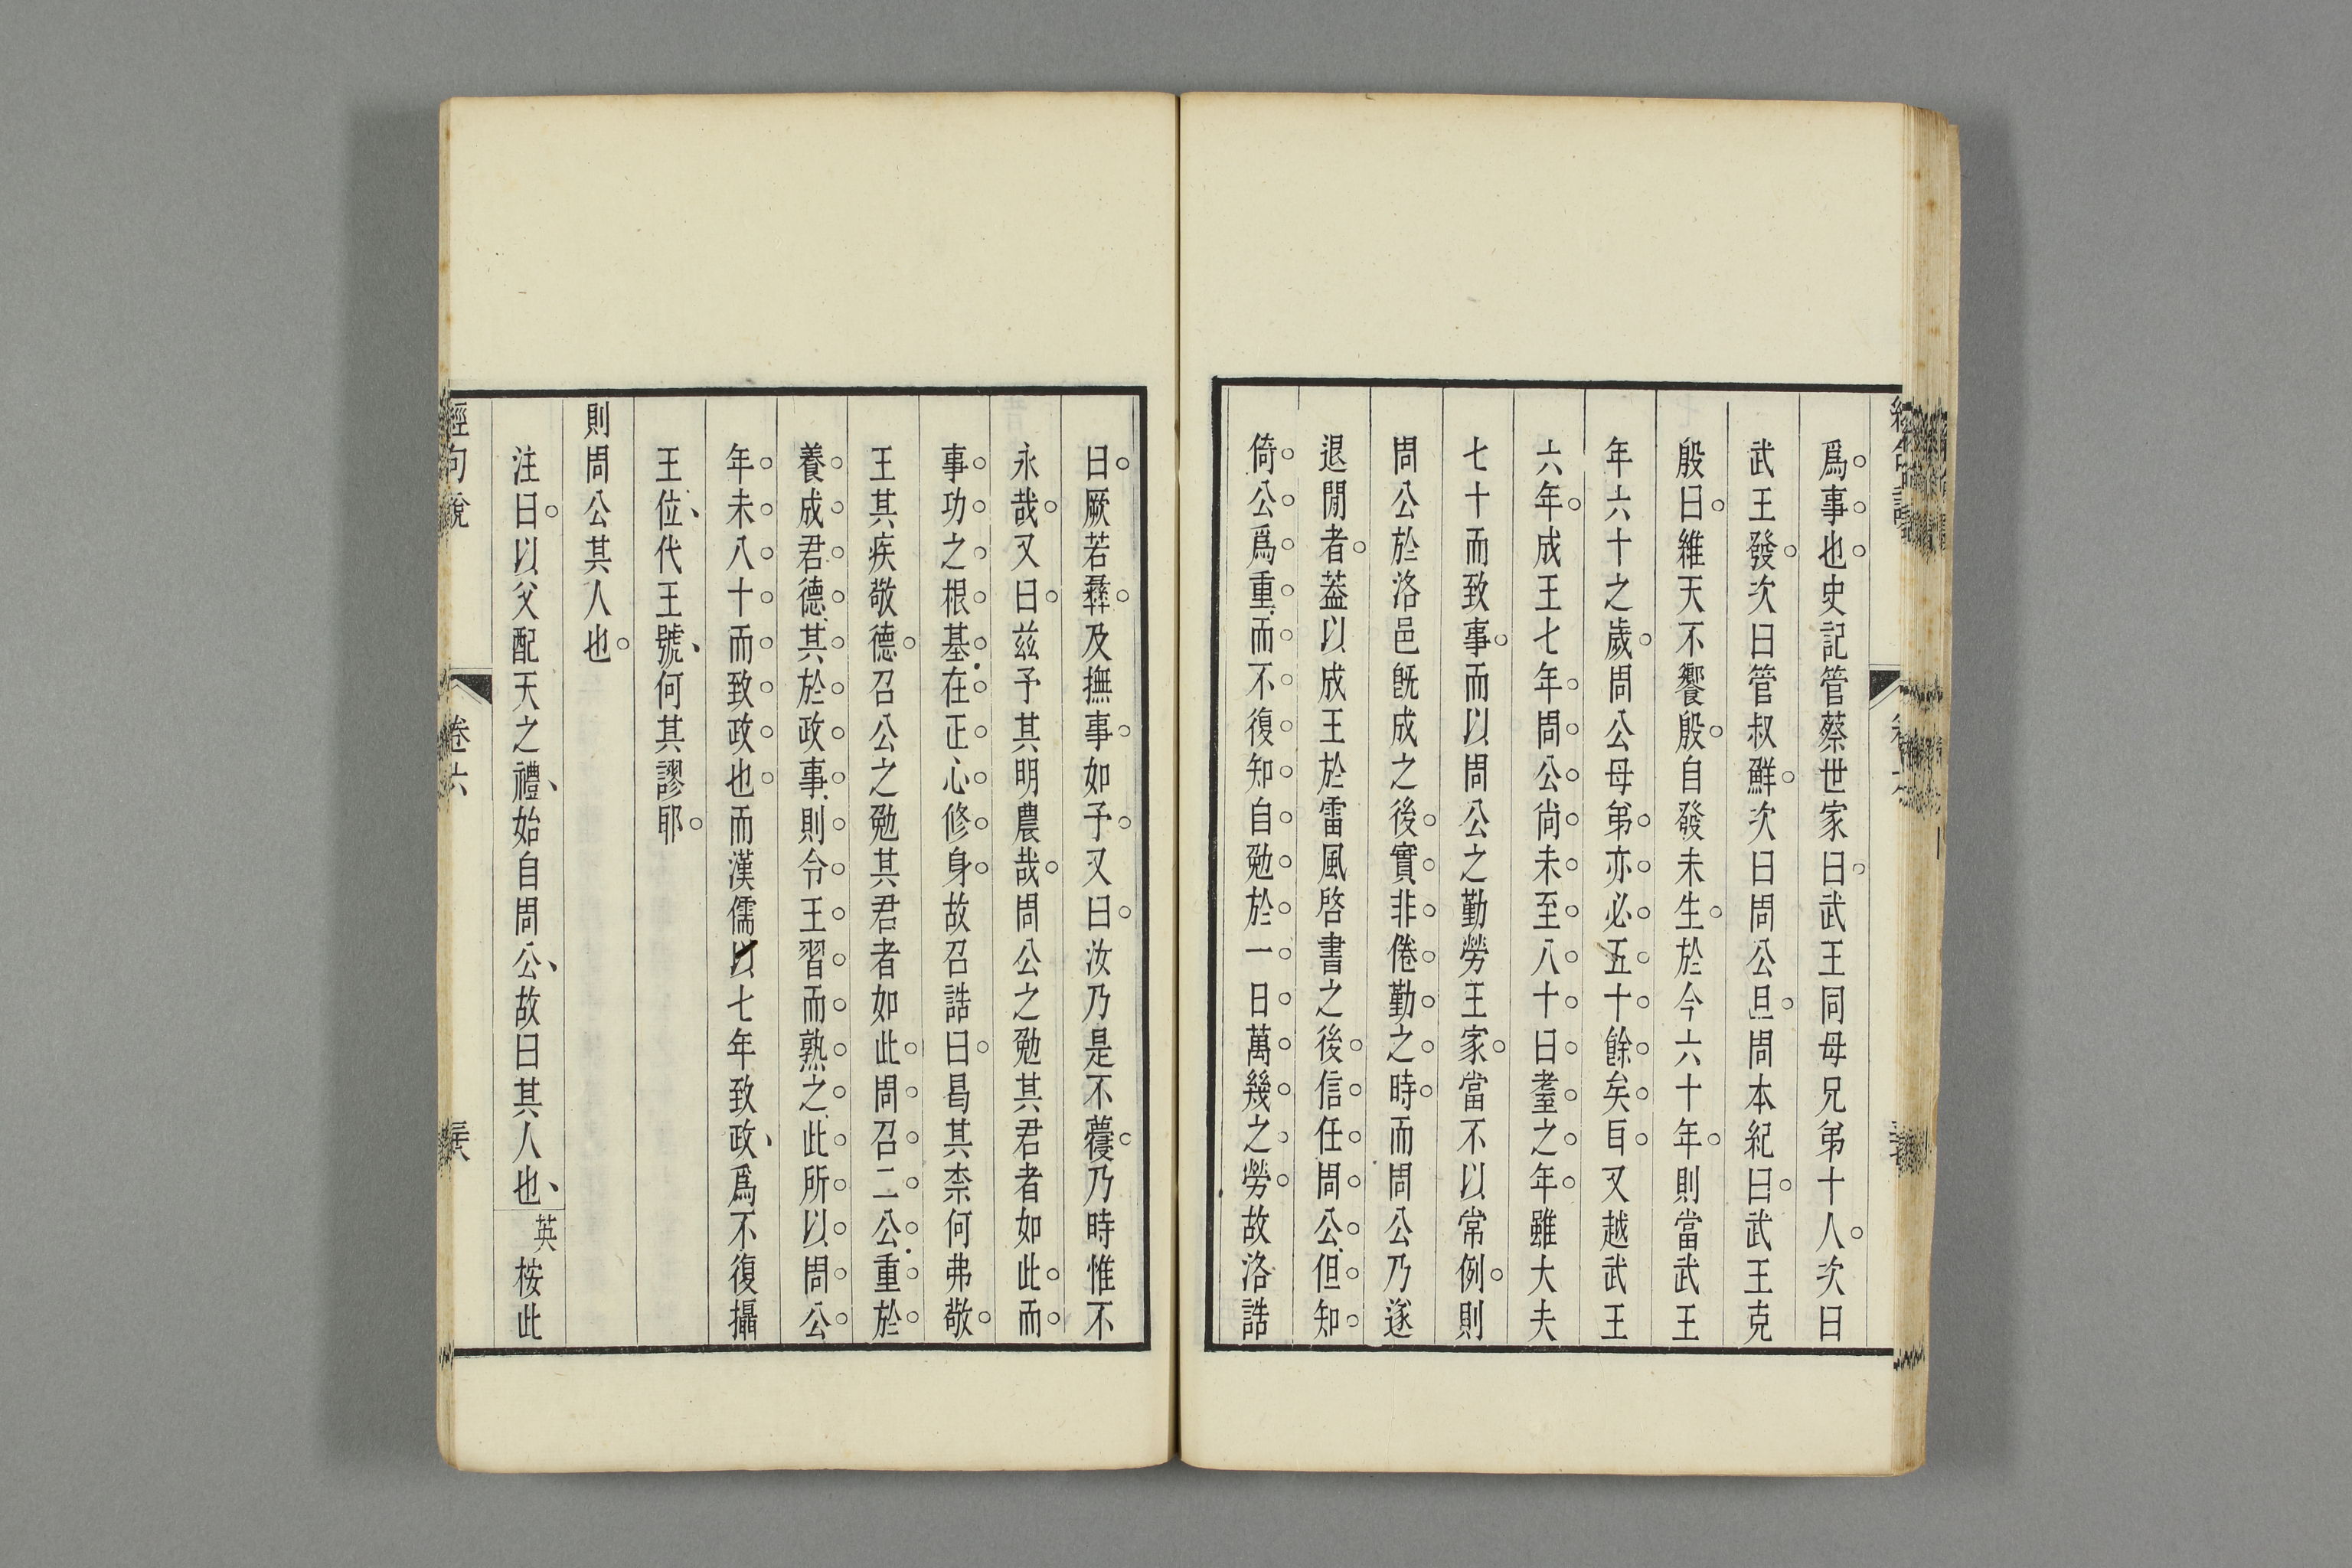 爲事也史記管蔡世家曰武王同母兄弟十人次曰
武王發次曰管叔鮮次曰周公旦周本紀曰武王克
殷曰維天不饗殷自發未生於今六十年則當武王
年六十之歲周公母弟亦必五十餘矣自又越武王
六年成王七年周公尚未至八十曰耋之年雖大夫
七十而致事而以周公之勤勞王家當不以常例則
周公於洛邑旣成之後實非倦勤之時而周公乃遂
退閒者葢以成王於雷風啓書之後信任周公但知
倚公爲重而不復知自勉於一日萬幾之勞故洛誥
曰厥若彝及撫事如予又曰汝乃是不蘉乃時惟不
永哉又曰兹予其明農哉周公之勉其君者如此而
事功之根基在正心修身故召誥曰曷其柰何弗敬
王其疾敬德召公之勉其君者如此周召二公重於
養成君德其於政事則令王習而熟之此所以周公
年未八十而致政也而漢儒以七年致政爲不復攝
王位代王號何其謬耶
則周公其人也
注曰以父配天之禮始自周公故曰其人也英桉此
經句說 卷六